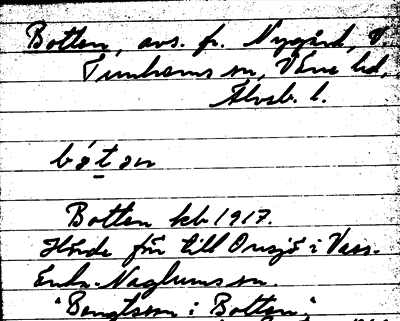 Botten, avs. fr. Nygård, V.
Tunhems sn, Väne hd,
Älvsb. l.
bótən
Botten kb 1917.
Hörde förr till Onsjö i Vass-
Enda-Naglums sn.
"Bengtsson i Botten".